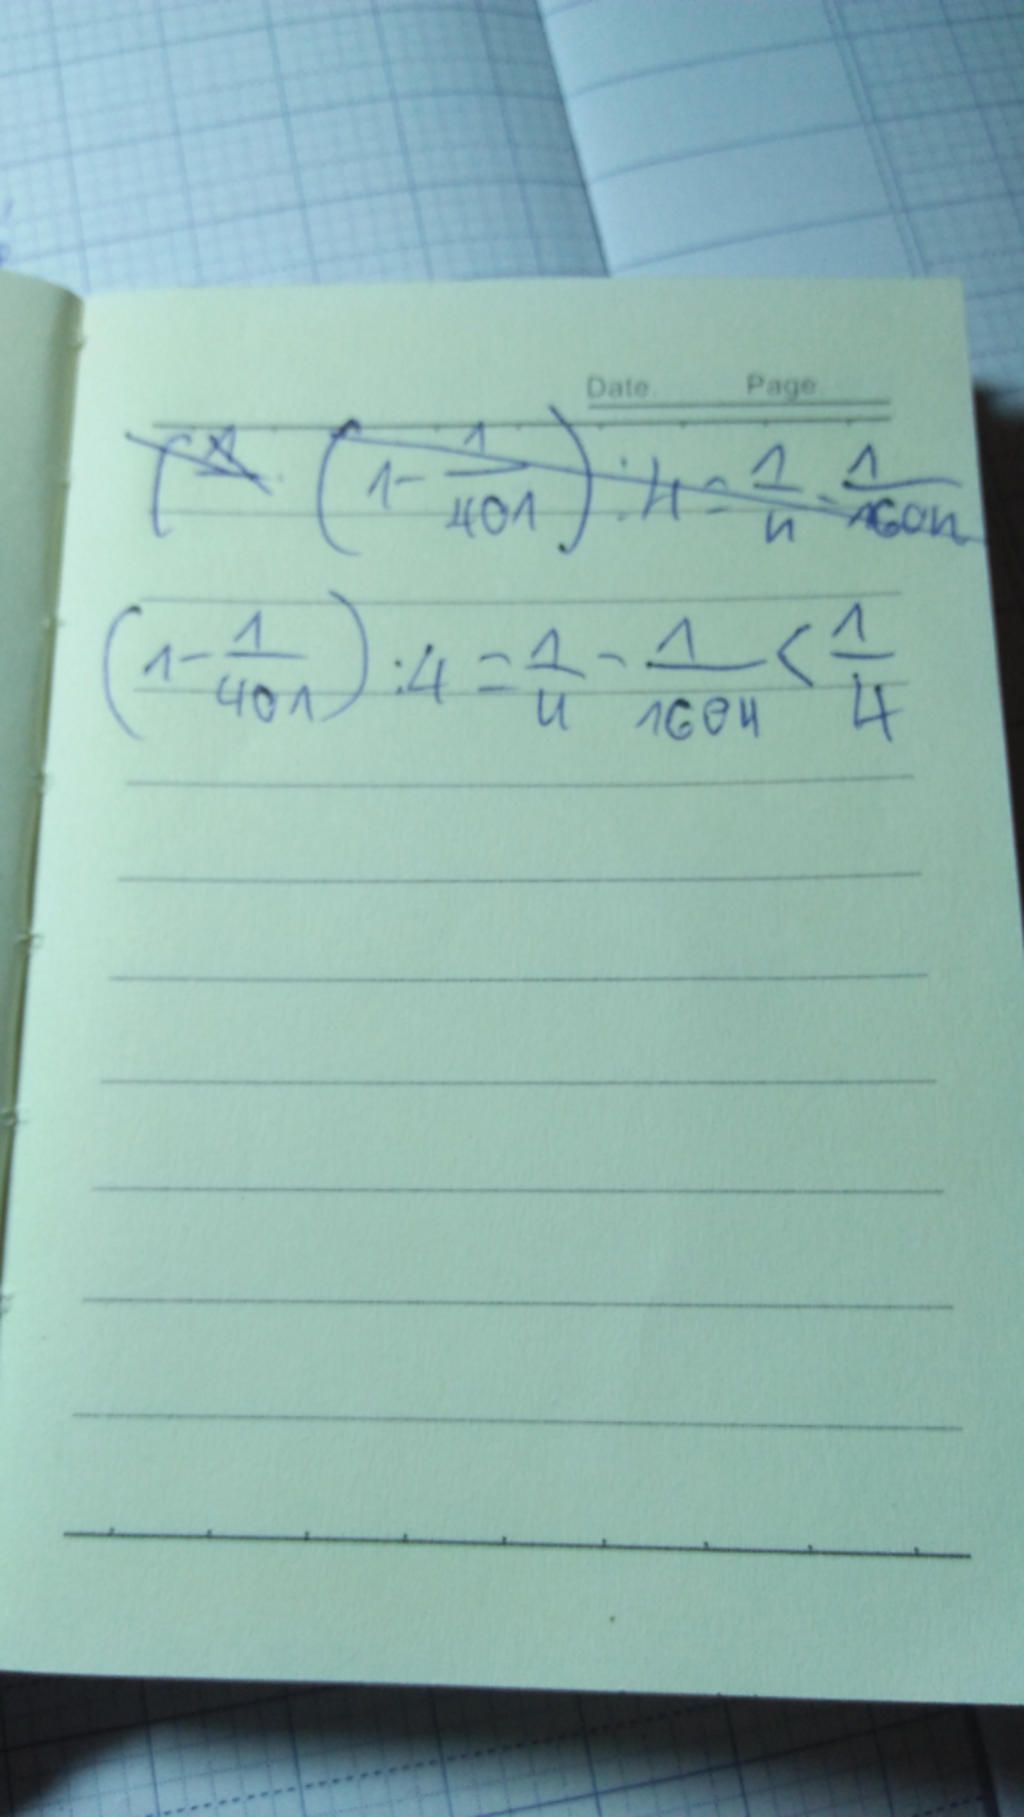 Date Page
(1/ (1 - 1/401) : 4 = 1/4 - 1/1604
(1 - 1/401) : 4 = 1/4 - 1/1604 < 1/4